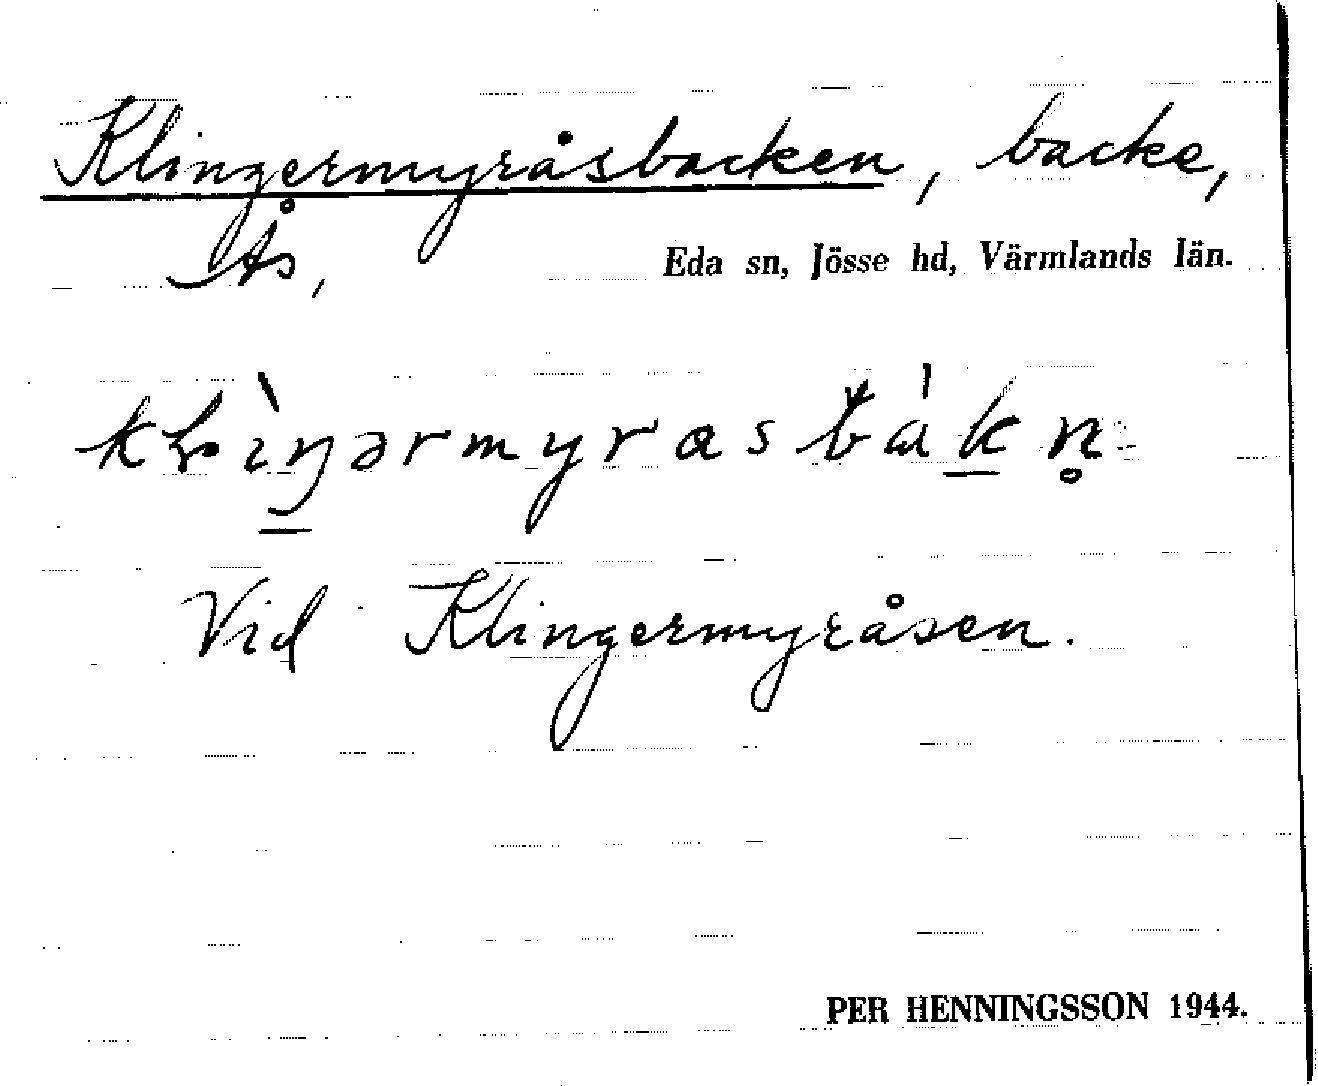 Klingermyråsbacken, backe,
Ås, Eda sn, Jösse hd, Värmlands län.
Vid Klingermyråsen.
PER HENNINGSSON 1944.